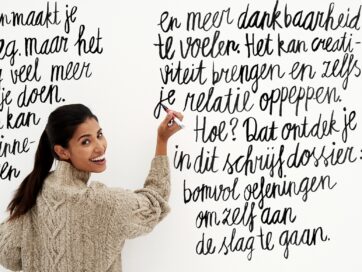 n maakt je
g. maar het
veel meer
je doen.
kan
nne-
en
en meer dankbaarheid
te voelen. Het kan creati-
viteit brengen en zelfs
je relatie oppeppen.
Hoe? Dat ontdek je
in dit schrijfdossier:
bomvol oefeningen
om zelf aan
de slag te gaan.